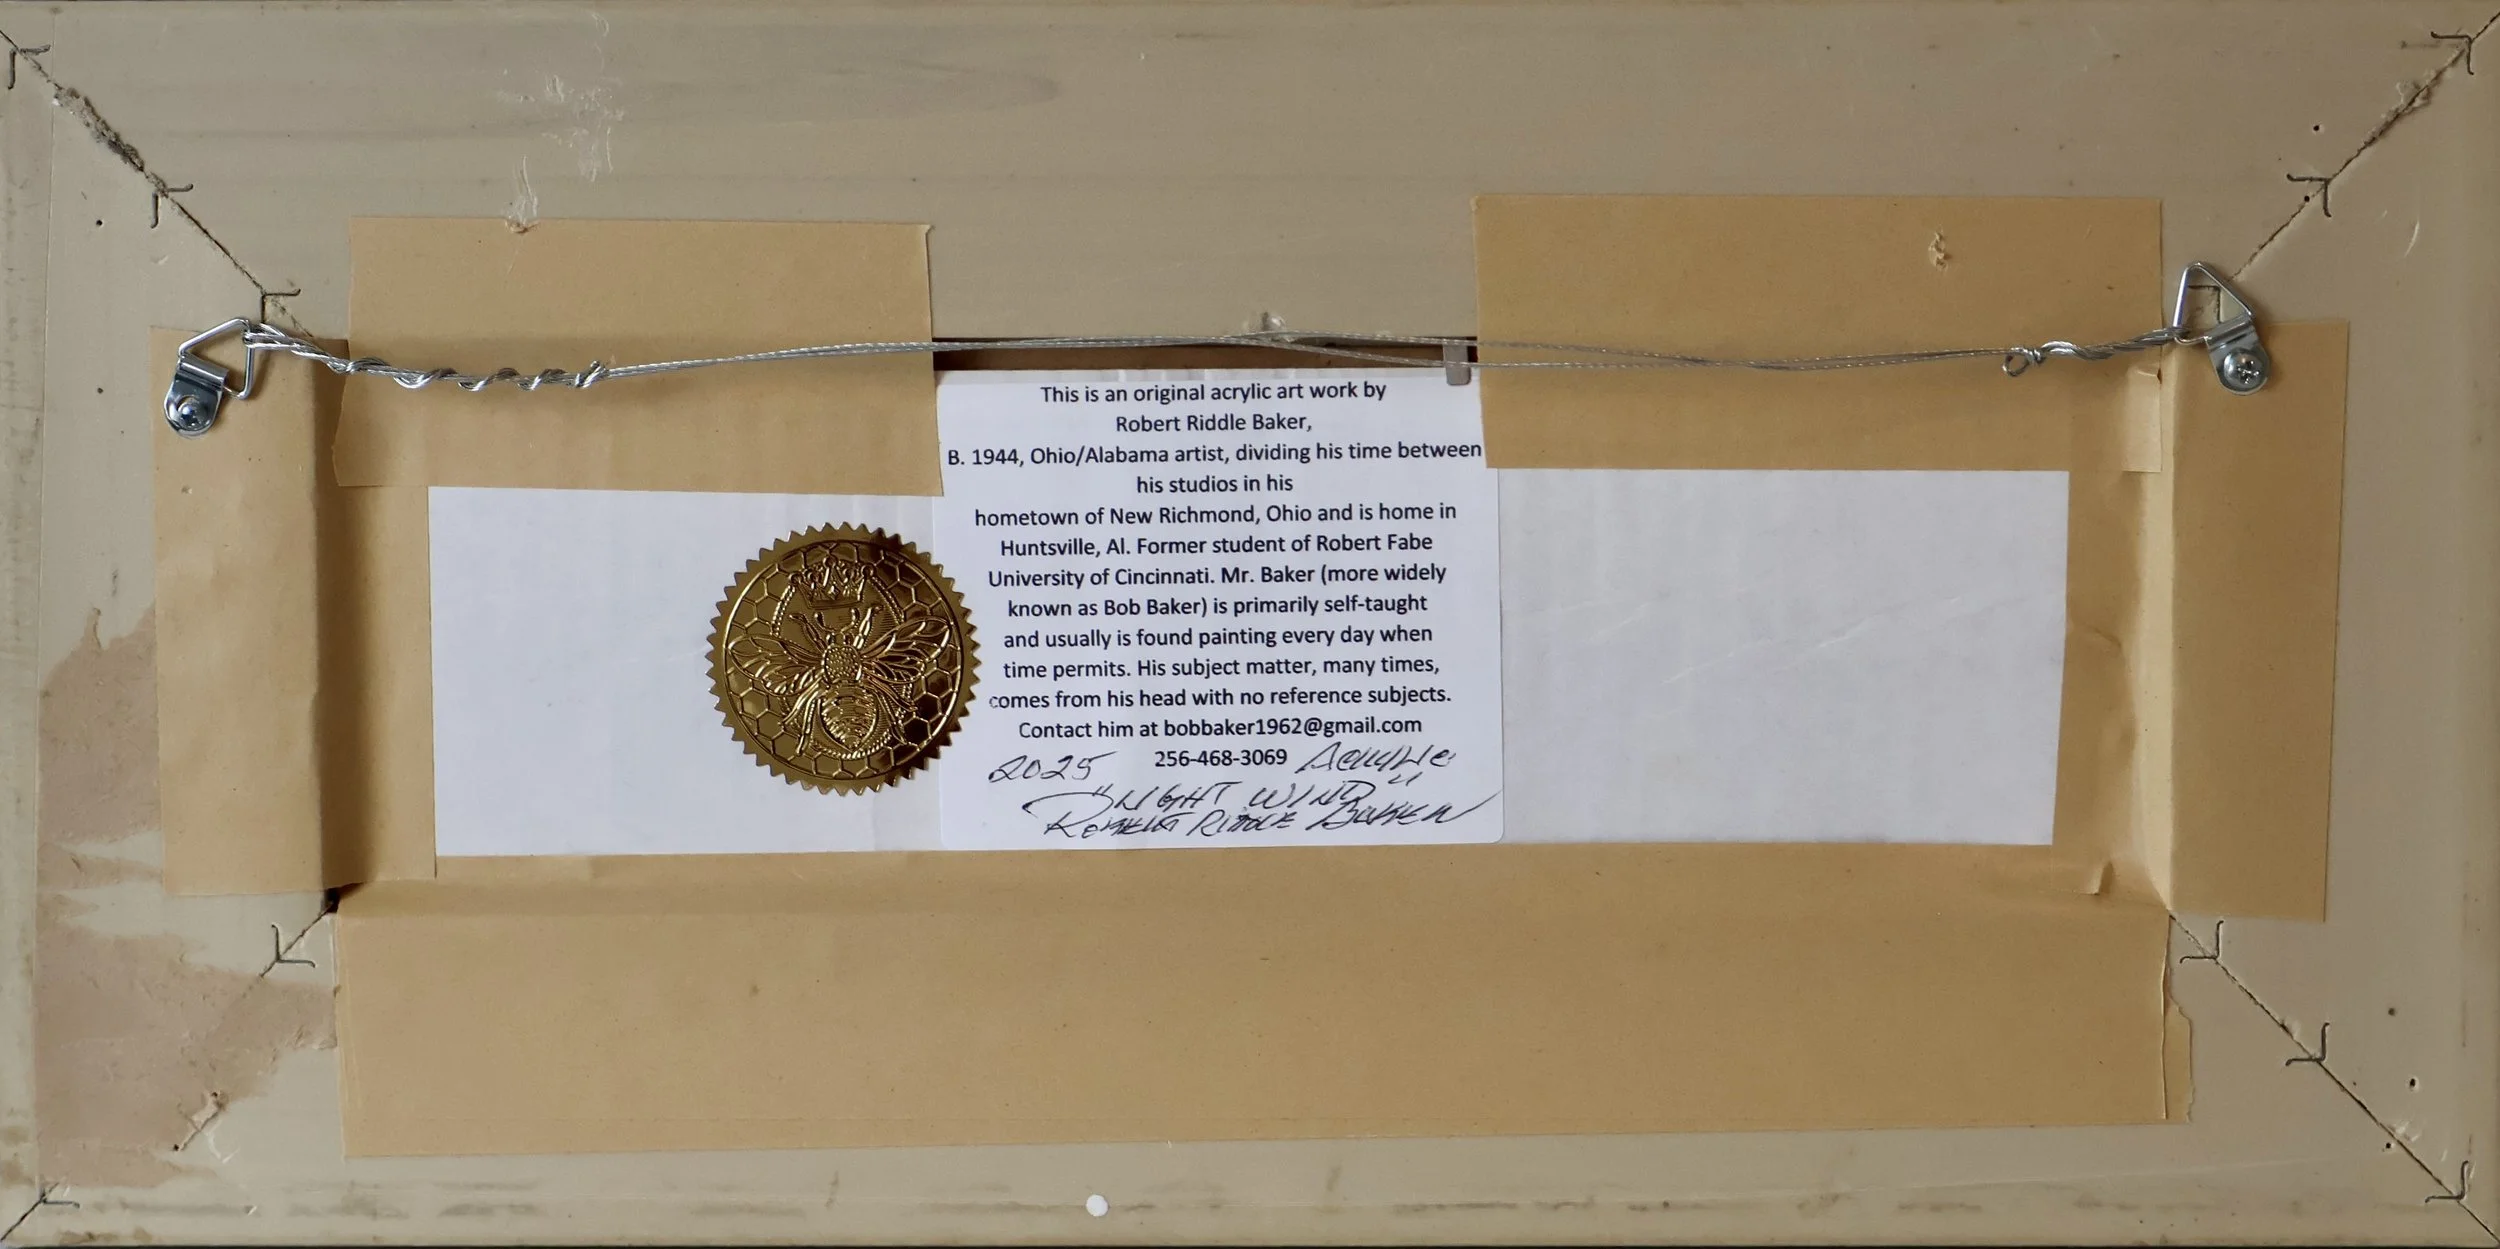 This is an original acrylic art work by
Robert Riddle Baker,
B. 1944, Ohio/Alabama artist, dividing his time between
his studios in his
hometown of New Richmond, Ohio and is home in
Huntsville, Al. Former student of Robert Fabe
University of Cincinnati. Mr. Baker (more widely
known as Bob Baker) is primarily self-taught
and usually is found painting every day when
time permits. His subject matter, many times,
comes from his head with no reference subjects.
Contact him at bobbaker1962@gmail.com
2025 256-468-3069 Acrylic
"NIGHT WIND"
ROBERT RIDDLE BAKER